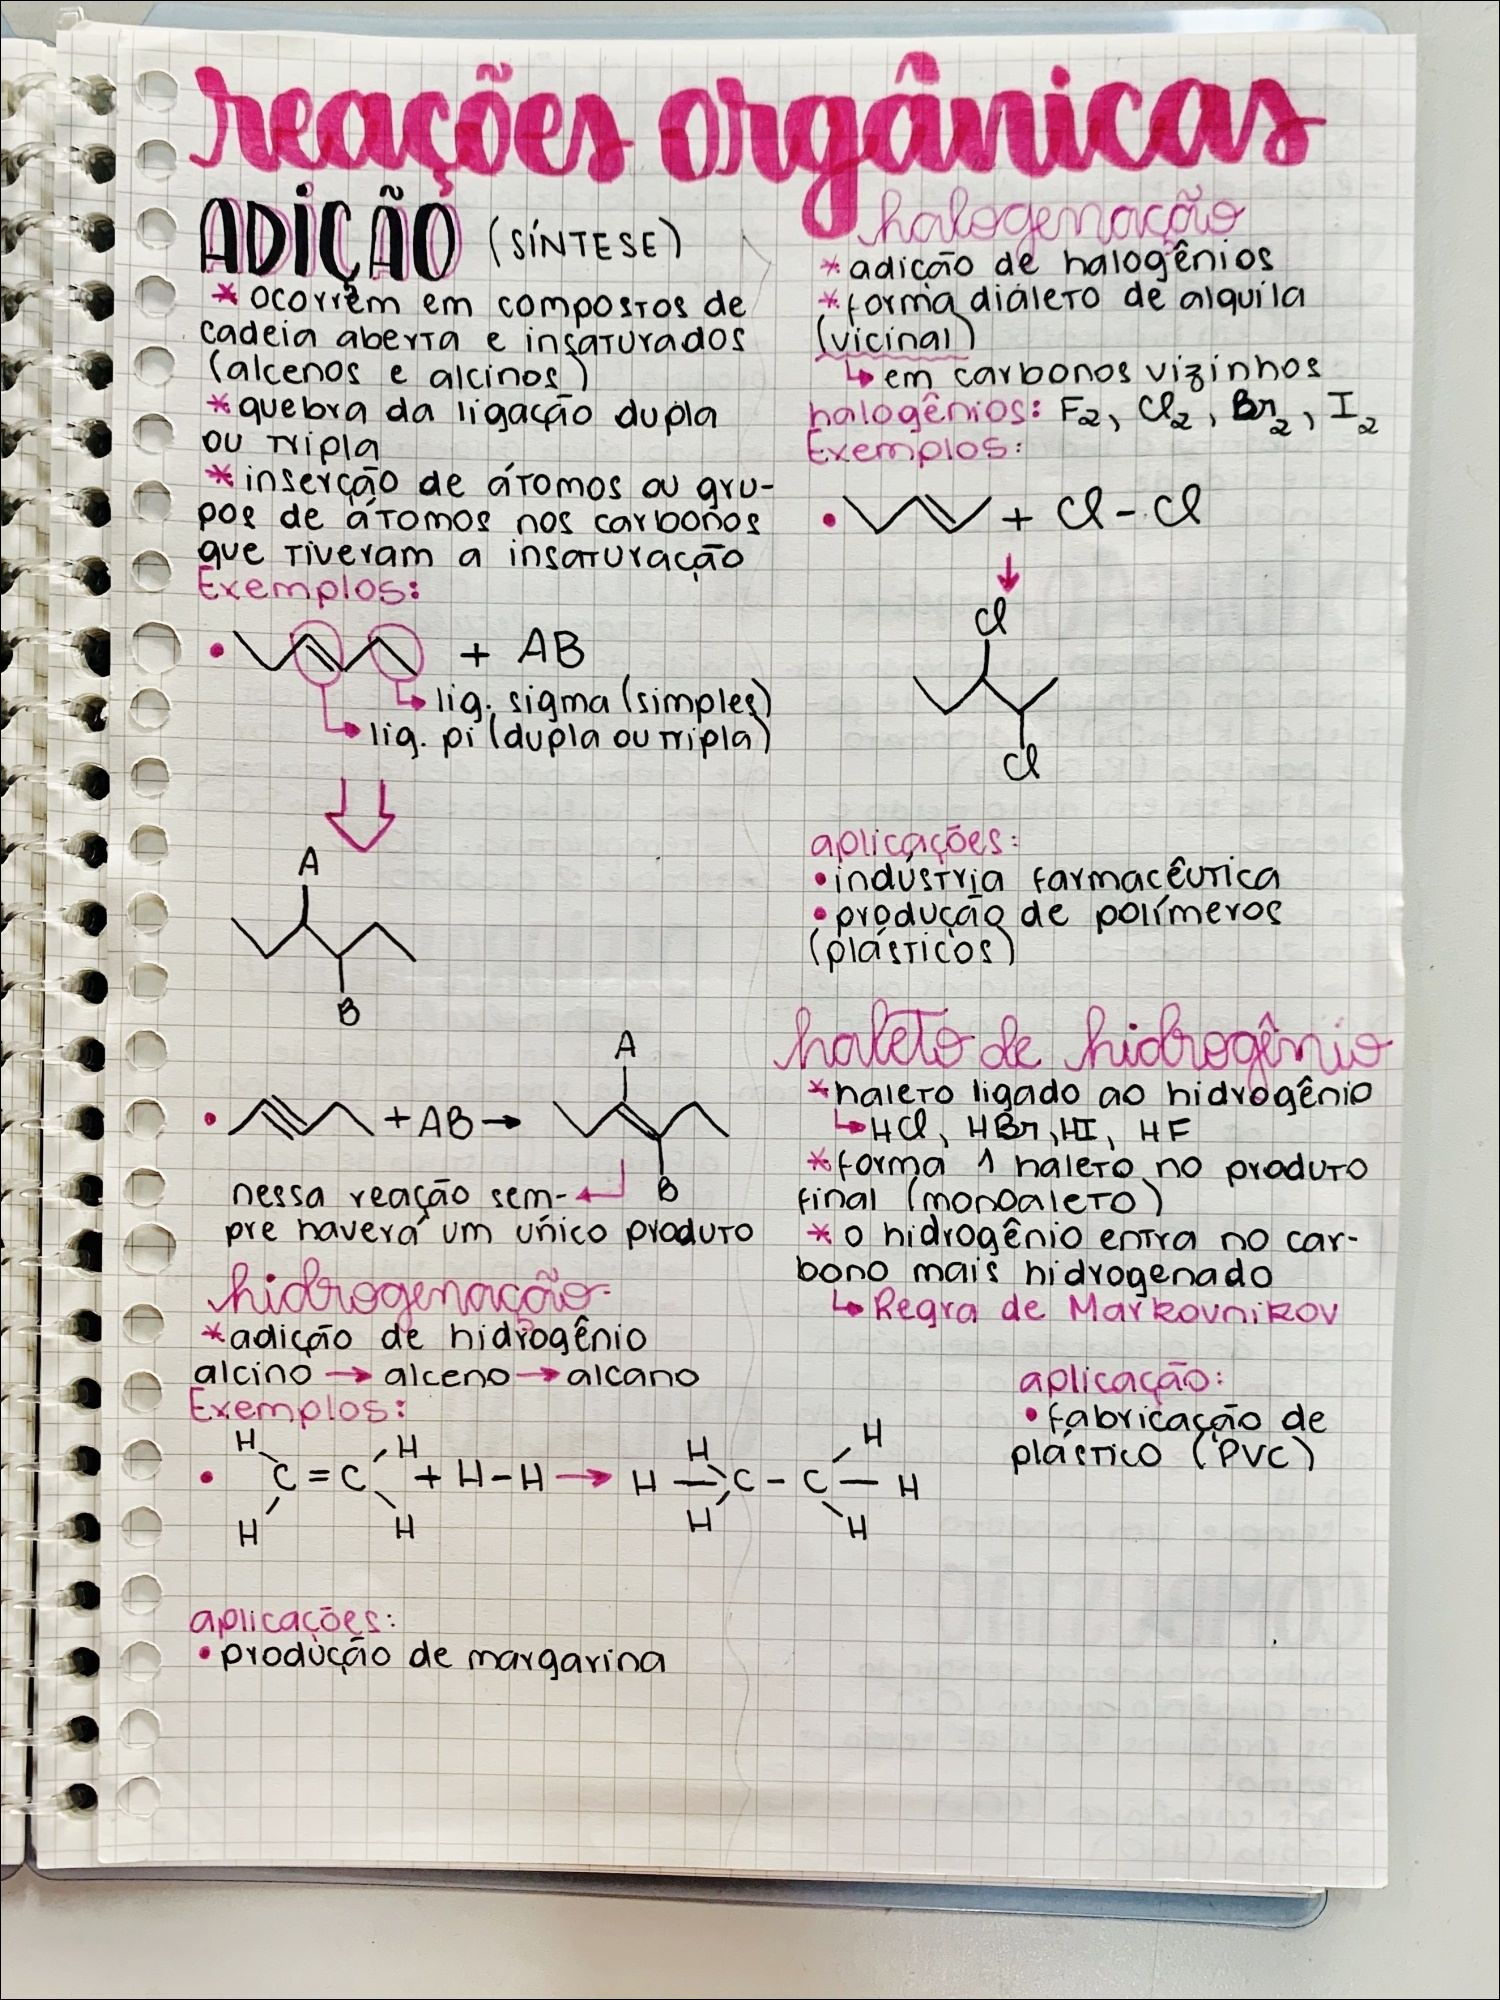 reações orgânicas
ADIÇÃO (SÍNTESE)
* ocorrem em compostos de
cadeia aberta e insaturados
(alcenos e alcinos)
* quebra da ligação dupla
ou tripla
* inserção de átomos ou gru-
pos de átomos nos carbonos
que tiveram a insaturação
Exemplos:
• + AB
lig. sigma (simples)
lig. pi (dupla ou tripla)
A
B
A
• + AB →
B
nessa reação sem-
pre haverá um único produto
hidrogenação
* adição de hidrogênio
alcino → alceno → alcano
Exemplos:
H H H H
• C = C + H - H → H — C - C — H
H H H H
aplicações:
• produção de margarina
halogenação
* adição de halogênios
* forma dialeto de alquila
(vicinal)
↳ em carbonos vizinhos
halogênios: F₂, Cl₂, Br₂, I₂
Exemplos:
• + Cl - Cl
↓
Cl
Cl
aplicações:
• indústria farmacêutica
• produção de polímeros
(plásticos)
haleto de hidrogênio
* haleto ligado ao hidrogênio
↳ HCl, HBr, HI, HF
* forma 1 haleto no produto
final (monoaleto)
* o hidrogênio entra no car-
bono mais hidrogenado
↳ Regra de Markovnikov
aplicação:
• fabricação de
plástico (PVC)